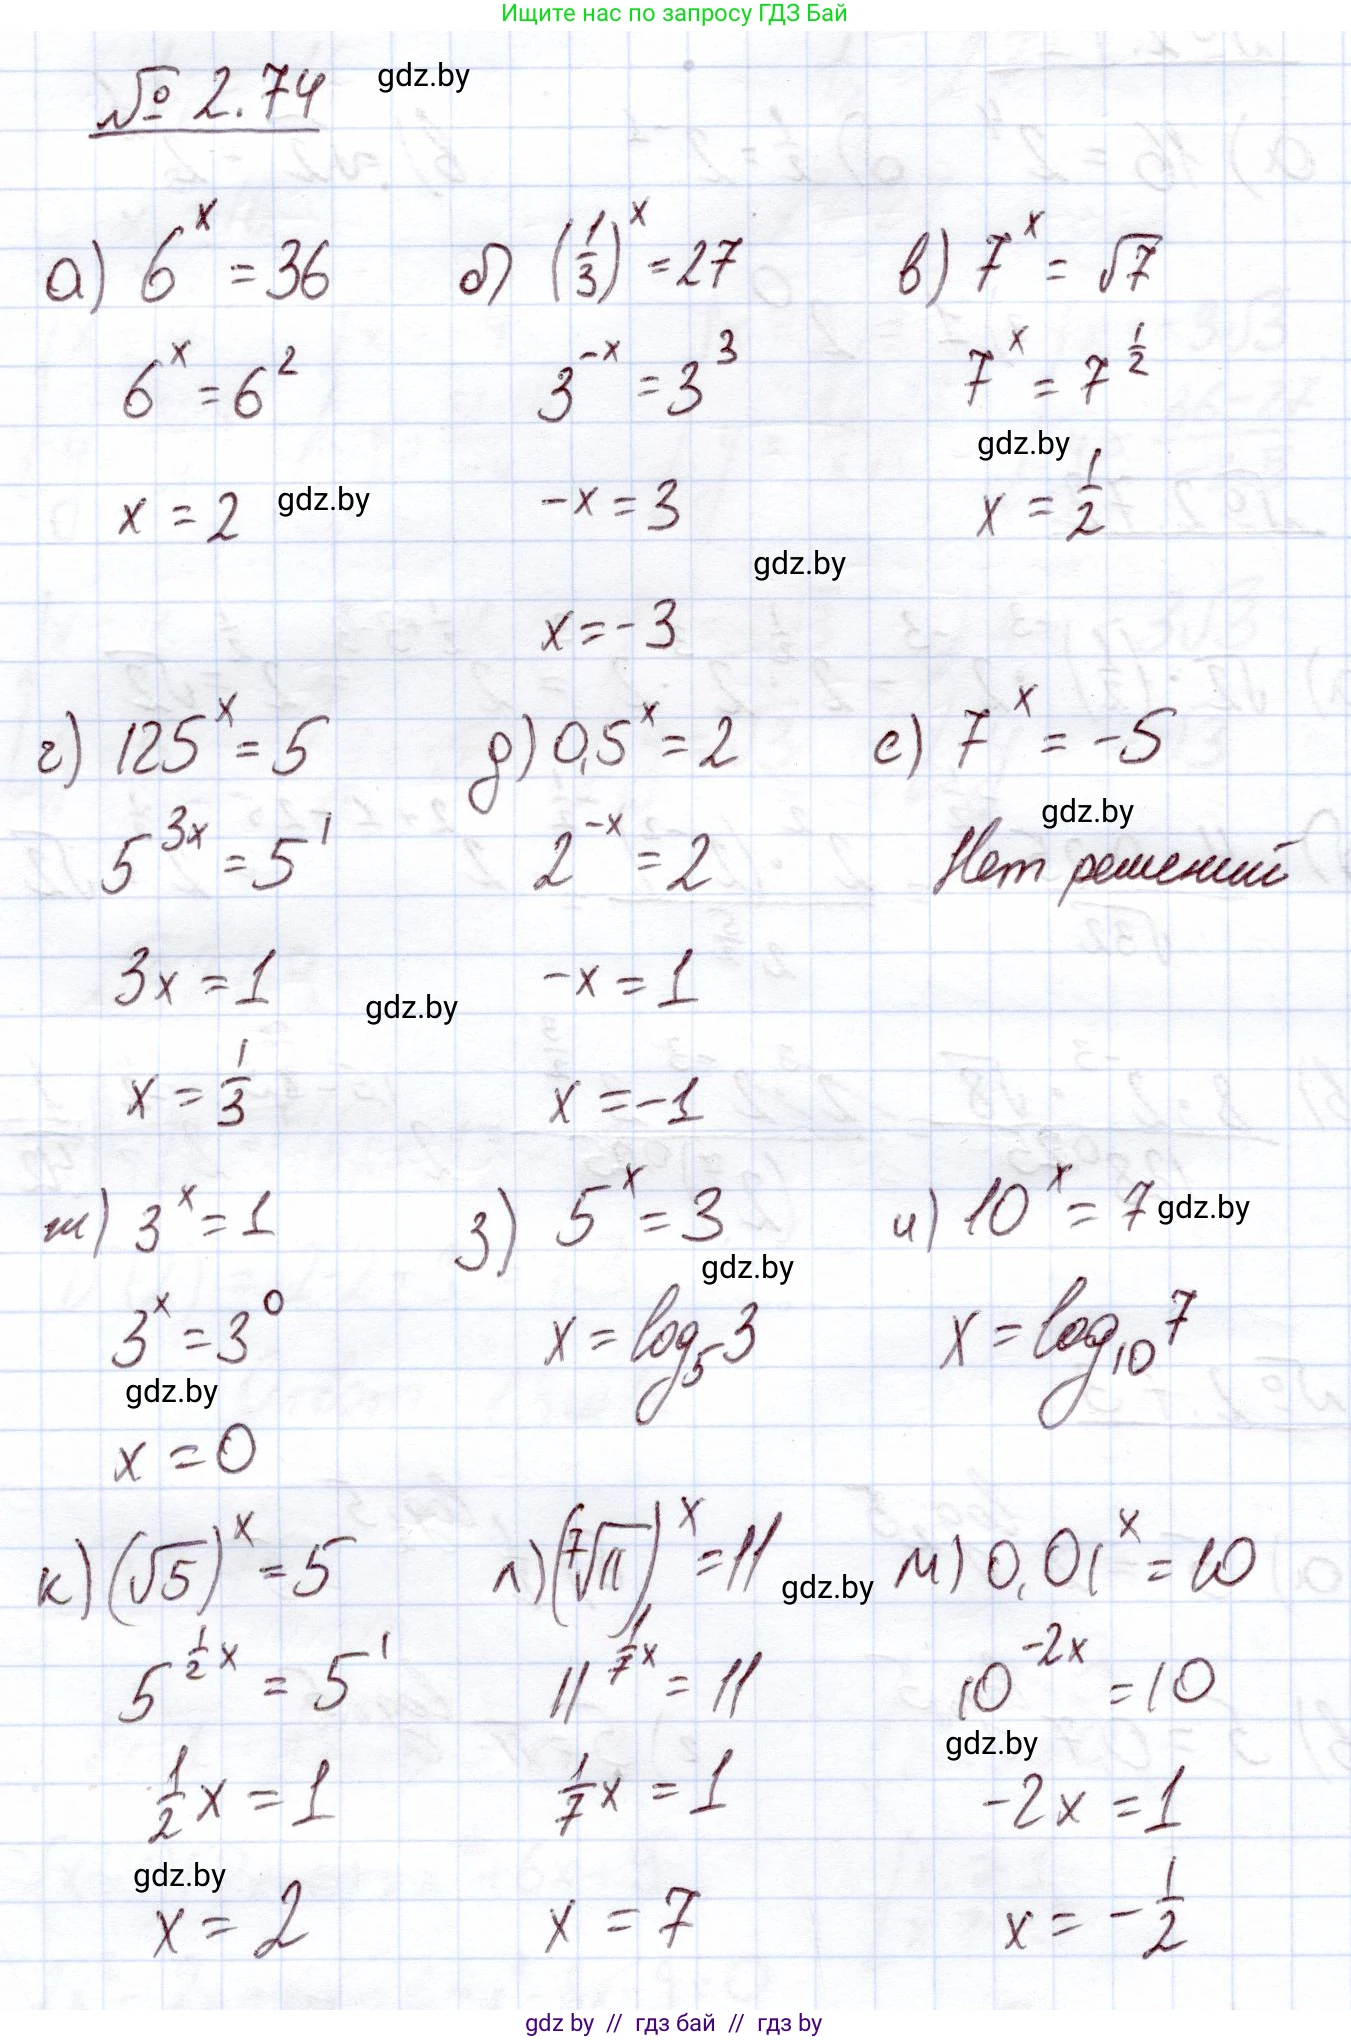 Ищите нас по запросу ГДЗ Бай
№ 2.74 gdz.by
а) 6^x = 36 б) (1/3)^x = 27 в) 7^x = √7
6^x = 6^2 3^(-x) = 3^3 7^x = 7^(1/2)
gdz.by
x = 2 gdz.by -x = 3 x = 1/2
gdz.by
x = -3
г) 125^x = 5 д) 0,5^x = 2 е) 7^x = -5
gdz.by
5^(3x) = 5^1 2^(-x) = 2 Нет решений
3x = 1 -x = 1
gdz.by
x = 1/3 x = -1
ж) 3^x = 1 з) 5^x = 3 и) 10^x = 7 gdz.by
gdz.by
3^x = 3^0 x = log_5 3 x = log_10 7
gdz.by
x = 0
к) (√5)^x = 5 л) (⁷√11)^x = 11 gdz.by м) 0,01^x = 10
5^(1/2 x) = 5^1 11^(1/7 x) = 11 10^(-2x) = 10
gdz.by
1/2 x = 1 1/7 x = 1 -2x = 1
gdz.by
x = 2 x = 7 x = -1/2
gdz by // гдз бай // гдз by